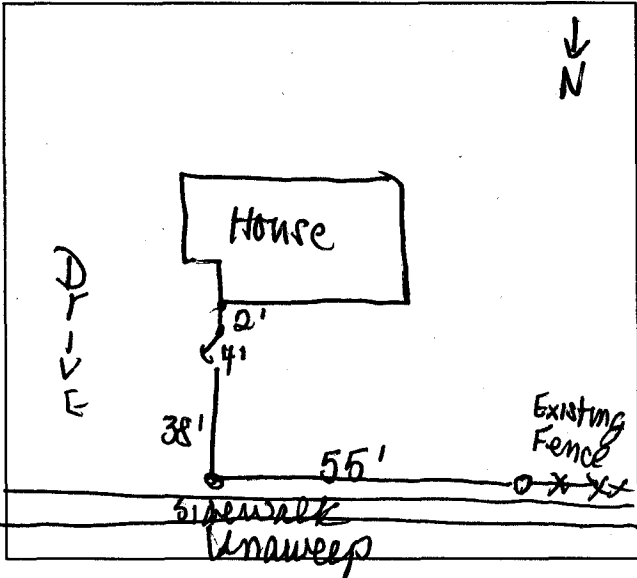 N
House
DrIVE
2'
4'
38'
55'
Existing
Fence
sidewalk
Unaweep